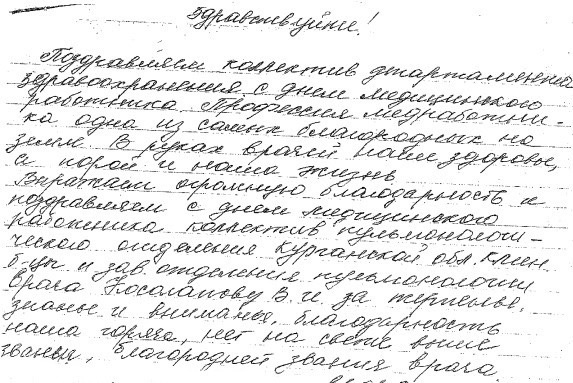 Здравствуйте!
Поздравляем коллектив департамента
здравоохранения с днем медицинского
работника. Профессия медработни-
ка одна из самых благородных на
земле. В руках врачей наше здоровье,
а порой и наша жизнь
Выражаем огромную благодарность и
поздравляем с днем медицинского
работника коллектив пульмонологи-
ческого отделения Курганской обл. клин.
б-цы и зав. отделения пульмонологии
врача Косолапову В. И. за терпенье,
знанье и вниманье, благодарность
наша горяча, нет на свете выше
званья, благородней звания врача